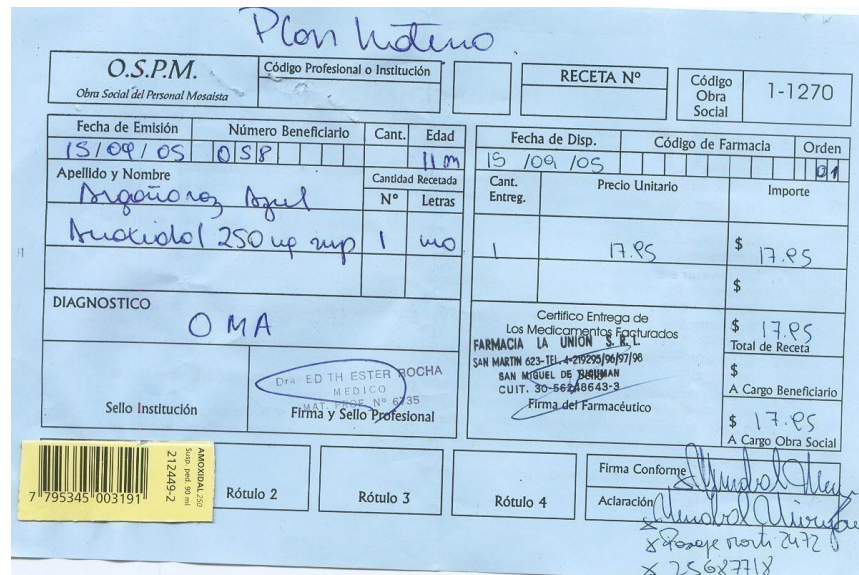 Plan Materno
O.S.P.M.
Obra Social del Personal Mosaista
Código Profesional o Institución
RECETA Nº
Código Obra Social
1-1270
Fecha de Emisión
Número Beneficiario
Cant.
Edad
15/09/05
058
11 m
Apellido y Nombre
Cantidad Recetada
Nº
Letras
Argañaraz Azul
Amoxidal 250 mg
1
uno
DIAGNOSTICO
OMA
Sello Institución
Dra EDITH ESTER ROCHA
MEDICO
MAT. PROF. Nº 6735
Firma y Sello Profesional
Fecha de Disp.
Código de Farmacia
Orden
15/09/05
01
Cant. Entreg.
Precio Unitario
Importe
1
17.85
$ 17.85
$
Certifico Entrega de
Los Medicamentos Facturados
FARMACIA LA UNION S. R. L.
SAN MARTIN 623-TEL. 4-219295/96/97/98
SAN MIGUEL DE TUCUMAN
CUIT. 30-56248643-3
Firma del Farmacéutico
$ 17.85
Total de Receta
$
A Cargo Beneficiario
$ 17.85
A Cargo Obra Social
7 795345 003191
AMOXIDAL 250
Susp. ped. 90 ml
212449-2
Rótulo 2
Rótulo 3
Rótulo 4
Firma Conforme
Aclaración
x Pasaje 2472
x 25687718